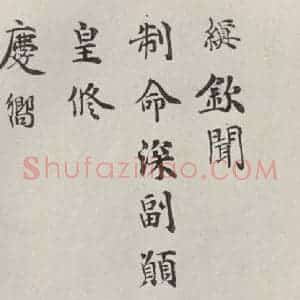 繏欽聞
制命深副願
皇修
慶嚮
Shufazidao.com